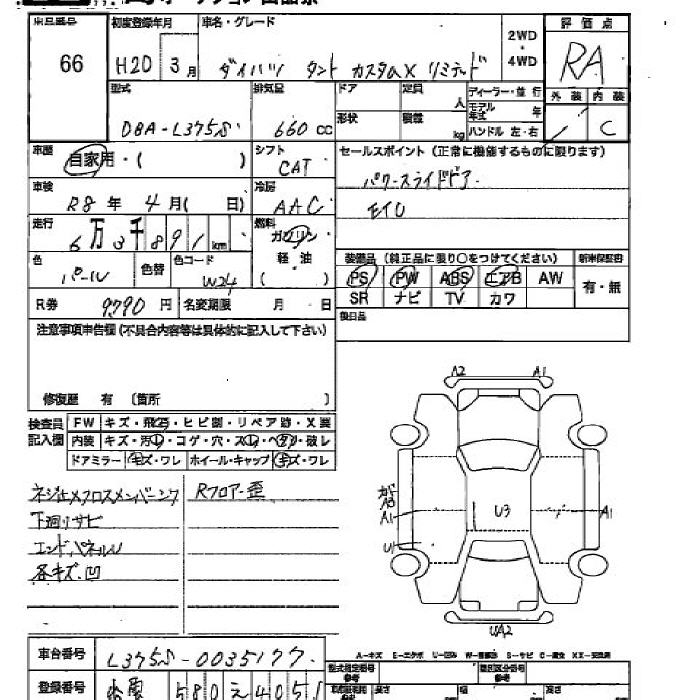 出品番号 初度登録年月 車名・グレード 2WD ・ 4WD 評価点
66 H20 3月 ダイハツ タント カスタムX リミテッド RA
型式 排気量 ドア 定員 人 ディーラー・並行 外装 内装
DBA-L375S 660 CC 形状 積載 kg モデル年式 年 ハンドル 左・右 C
車歴 自家用・( ) シフト CAT セールスポイント (正常に機能するものに限ります)
車検 R8年 4月( 日) 冷房 AAC パワースライドドア
走行 6万3千891km 燃料 ガソリン 軽油 ( )
色 パール 色替 色コード W24
装備品 (純正品に限り○をつけてください) 新車保証書
PS PW ABS エアB AW 有・無
SR ナビ TV カワ
R券 9790円 名変期限 月・日
後日品
注意事項申告欄 (不具合内容等は具体的に記入して下さい)
修復歴 有 〔箇所 〕
検査員記入欄 FW キズ・飛石・ヒビ割・リペア跡・X要
内装 キズ・汚レ・コゲ・穴・スレ・ベタ・破レ
ドアミラー キズ・ワレ ホイール・キャップ キズ・ワレ
ネジ止メクロスメンバーニング Rフロアー歪
下廻りサビ
エンドパネルU
各キズ.凹
A2 A1
U3
A3
A1 A1
U1
UA2
A-キズ E-エクボ U-凹み W-補修跡 S-サビ C-腐食 XX-交換済
車台番号 L375S-0035177
型式指定番号 類別区分番号
登録番号 580 え 4058
長さ 幅 高さ